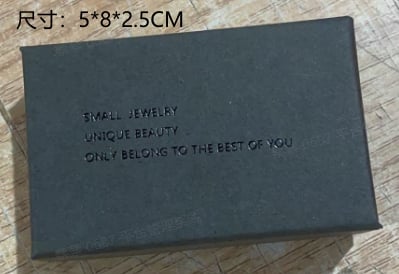 尺寸：5*8*2.5CM
SMALL JEWELRY
UNIQUE BEAUTY
ONLY BELONG TO THE BEST OF YOU